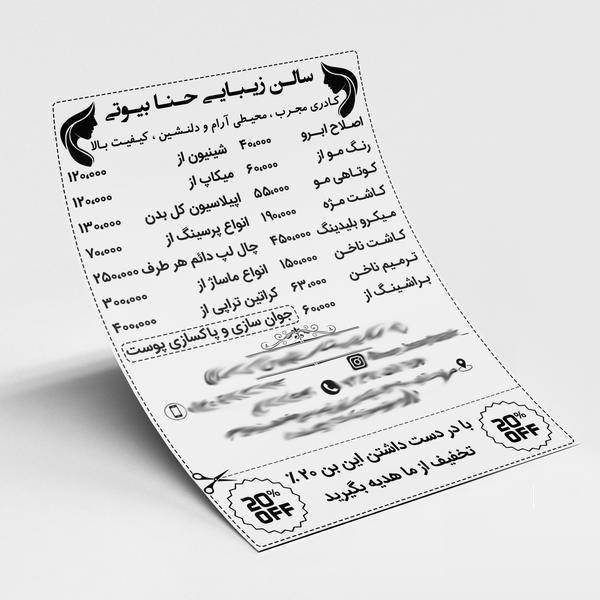 سالن زیبایی حنا بیوتی
کادری مجرب ، محیطی آرام و دلنشین ، کیفیت بالا
اصلاح ابرو ۴۰،۰۰۰ شینیون از ۱۲۰،۰۰۰
رنگ مو از ۶۰،۰۰۰ میکاپ از ۱۲۰،۰۰۰
کوتاهی مو ۵۵،۰۰۰ اپیلاسیون کل بدن ۱۳۰،۰۰۰
کاشت مژه ۱۹۰،۰۰۰ انواع پرسینگ از ۷۰،۰۰۰
میکرو بلیدینگ ۴۵۰،۰۰۰ چال لپ دائم هر طرف ۲۵۰،۰۰۰
کاشت ناخن ۱۵۰،۰۰۰ انواع ماساژ از ۳۰۰،۰۰۰
ترمیم ناخن ۶۳،۰۰۰ کراتین تراپی از ۴۰۰،۰۰۰
براشینگ از ۶۰،۰۰۰ جوان سازی و پاکسازی پوست
با در دست داشتن این بن ۲۰٪
تخفیف از ما هدیه بگیرید
20% OFF
20% OFF